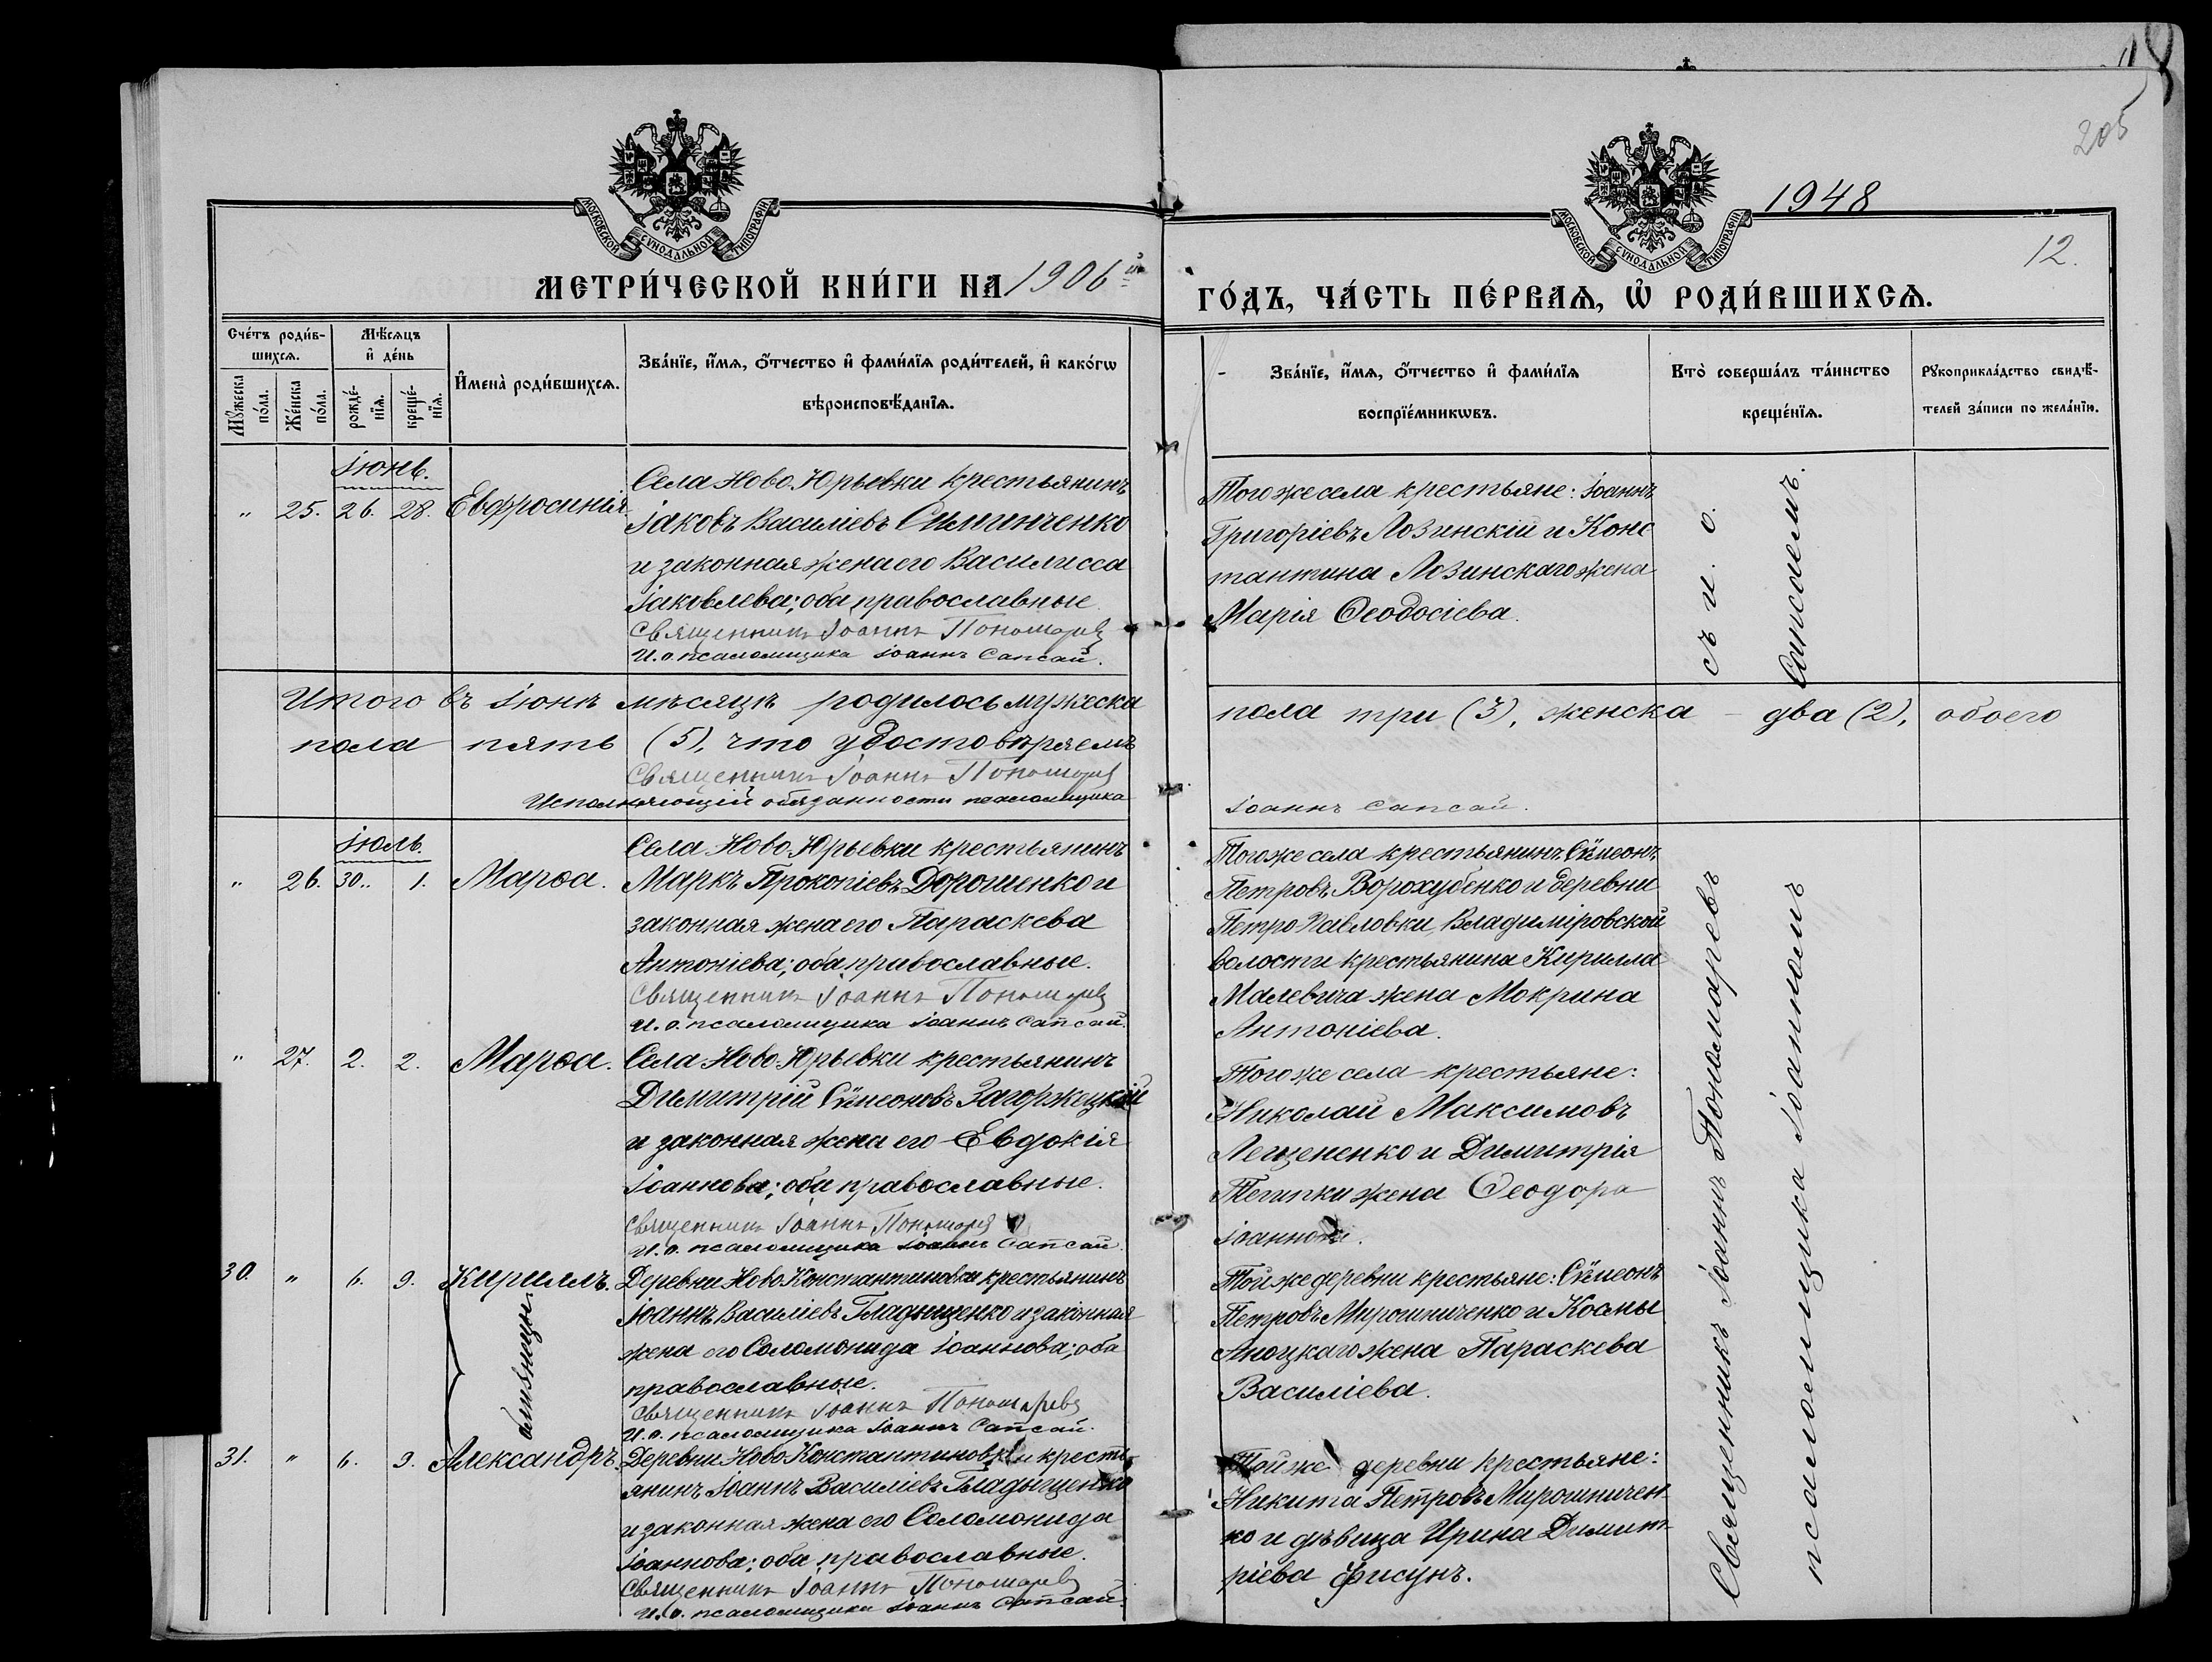 205
1948
12.
МОСКОВСКОЙ СѴНОДАЛЬНОЙ ТИПОГРАФІИ
МОСКОВСКОЙ СѴНОДАЛЬНОЙ ТИПОГРАФІИ
МЕТРИ́ЧЕСКОЙ КНИ́ГИ НА 1906й
ГО́ДЪ, ЧА́СТЬ ПЕ́РВАѦ, Ѡ҆ РОДИ́ВШИХСѦ.
Сче́тъ роди́в-
шихсѧ.
Мꙋ́жеска
по́ла.
Же́нска
по́ла.
Мѣ́сѧцъ
и҆ де́нь
рожде́-
нїѧ.
креще́-
нїѧ.
И҆мена̀ роди́вшихсѧ.
Зва́нїе, и҆́мѧ, ѻ҆́тчество и҆ фами́лїѧ роди́телей, и҆ како́гѡ
вѣроисповѣ́данїѧ.
Зва́нїе, и҆́мѧ, ѻ҆́тчество и҆ фами́лїѧ
воспрїе́мникѡвъ.
Кто̀ соверша́лъ та́инство
креще́нїѧ.
Рꙋкоприкла́дство свидѣ́-
телей за́писи по жела́нїю.
Іюнь.
„ 25. 26. 28. Евфросинія
Села Ново-Юрьевки крестьянинъ
Іаковъ Василіевъ Симинченко
и законная жена его Василисса
Іаковлева; оба православные.
Священникъ Іоаннъ Пономаревъ
И. о. псаломщика Іоаннъ Сапсай.
Того же села крестьяне: Іоаннъ
Григоріевъ Лозинскій и Конс
тантина Лозинскаго жена
Марія Ѳеодосіева.
съ и. о.
Сапсаемъ.
Итого въ Іюнѣ мѣсяцѣ родилось мужеска
пола три (3), женска – два (2), обоего
пола пять (5), что удостовѣряемъ
Священникъ Іоаннъ Пономаревъ
Исполняющій обязанности псаломщика
Іоаннъ Сапсай.
Іюль.
„ 26. 30. 1. Марѳа.
Села Ново-Юрьевки крестьянинъ
Маркъ Прокопіевъ Дорошенко и
законная жена его Параскева
Антоніева; оба православные.
Священникъ Іоаннъ Пономаревъ
И. о. псаломщика Іоаннъ Сапсай.
Того же села крестьянинъ Сѵмеонъ
Петровъ Ворохубенко и деревни
Петро-Павловки, Владиміровской
волости крестьянина Кирилла
Малевича жена Мокрина
Антоніева.
„ 27. 2. 2. Марѳа.
Села Ново-Юрьевки крестьянинъ
Димитрій Сѵмеоновъ Загоржецкій
и законная жена его Евдокія
Іоаннова; оба православные.
Священникъ Іоаннъ Пономаревъ
И. о. псаломщика Іоаннъ Сапсай.
Того же села крестьяне:
Николай Максимовъ
Лещененко и Димитрія
жена Ѳеодора
Іоаннова.
30. „ 6. 9. Кириллъ.
близнецы.
Деревни Ново-Константиновки крестьянинъ
Іоаннъ Василіевъ Гладыщенко и законная
жена его Соломонида Іоаннова; оба
православные.
Священникъ Іоаннъ Пономаревъ
И. о. псаломщика Іоаннъ Сапсай.
Той же деревни крестьяне: Сѵмеонъ
Петровъ Мирошниченко и Космы
жена Параскева
Василіева.
31. „ 6. 9. Александръ.
Деревни Ново-Константиновки кресть-
янинъ Іоаннъ Василіевъ Гладыщенко
и законная жена его Соломонида
Іоаннова; оба православные.
Священникъ Іоаннъ Пономаревъ
И. о. псаломщика Іоаннъ Сапсай.
Той же деревни крестьяне:
Никита Петровъ Мирошничен-
ко и дѣвица Ирина Димит-
ріева Фисунъ.
Священникъ Іоаннъ Пономаревъ
псаломщика Іоанномъ